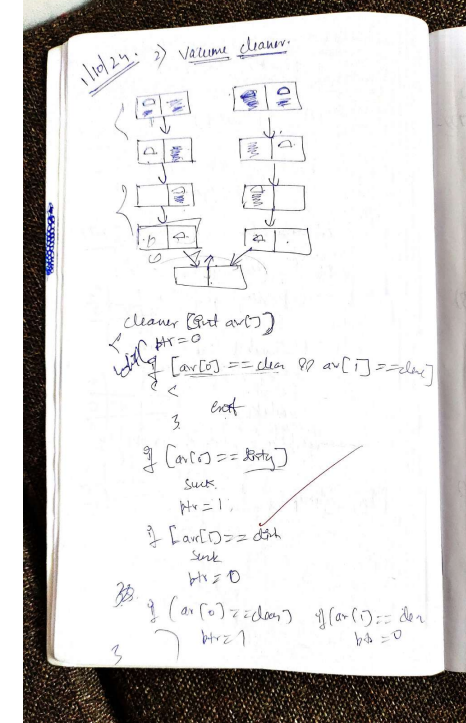 1/10/24. 2) Vacume cleaner.
cleaner [int av[])
ptr = 0
if [av[0] == clean && av[1] == clean]
exit
if [av[0] == dirty]
suck
ptr = 1
if [av[1] == dirty
suck
ptr = 0
if (av[0] == clean) if (av[1] == clean
ptr = 1 ptr = 0
}